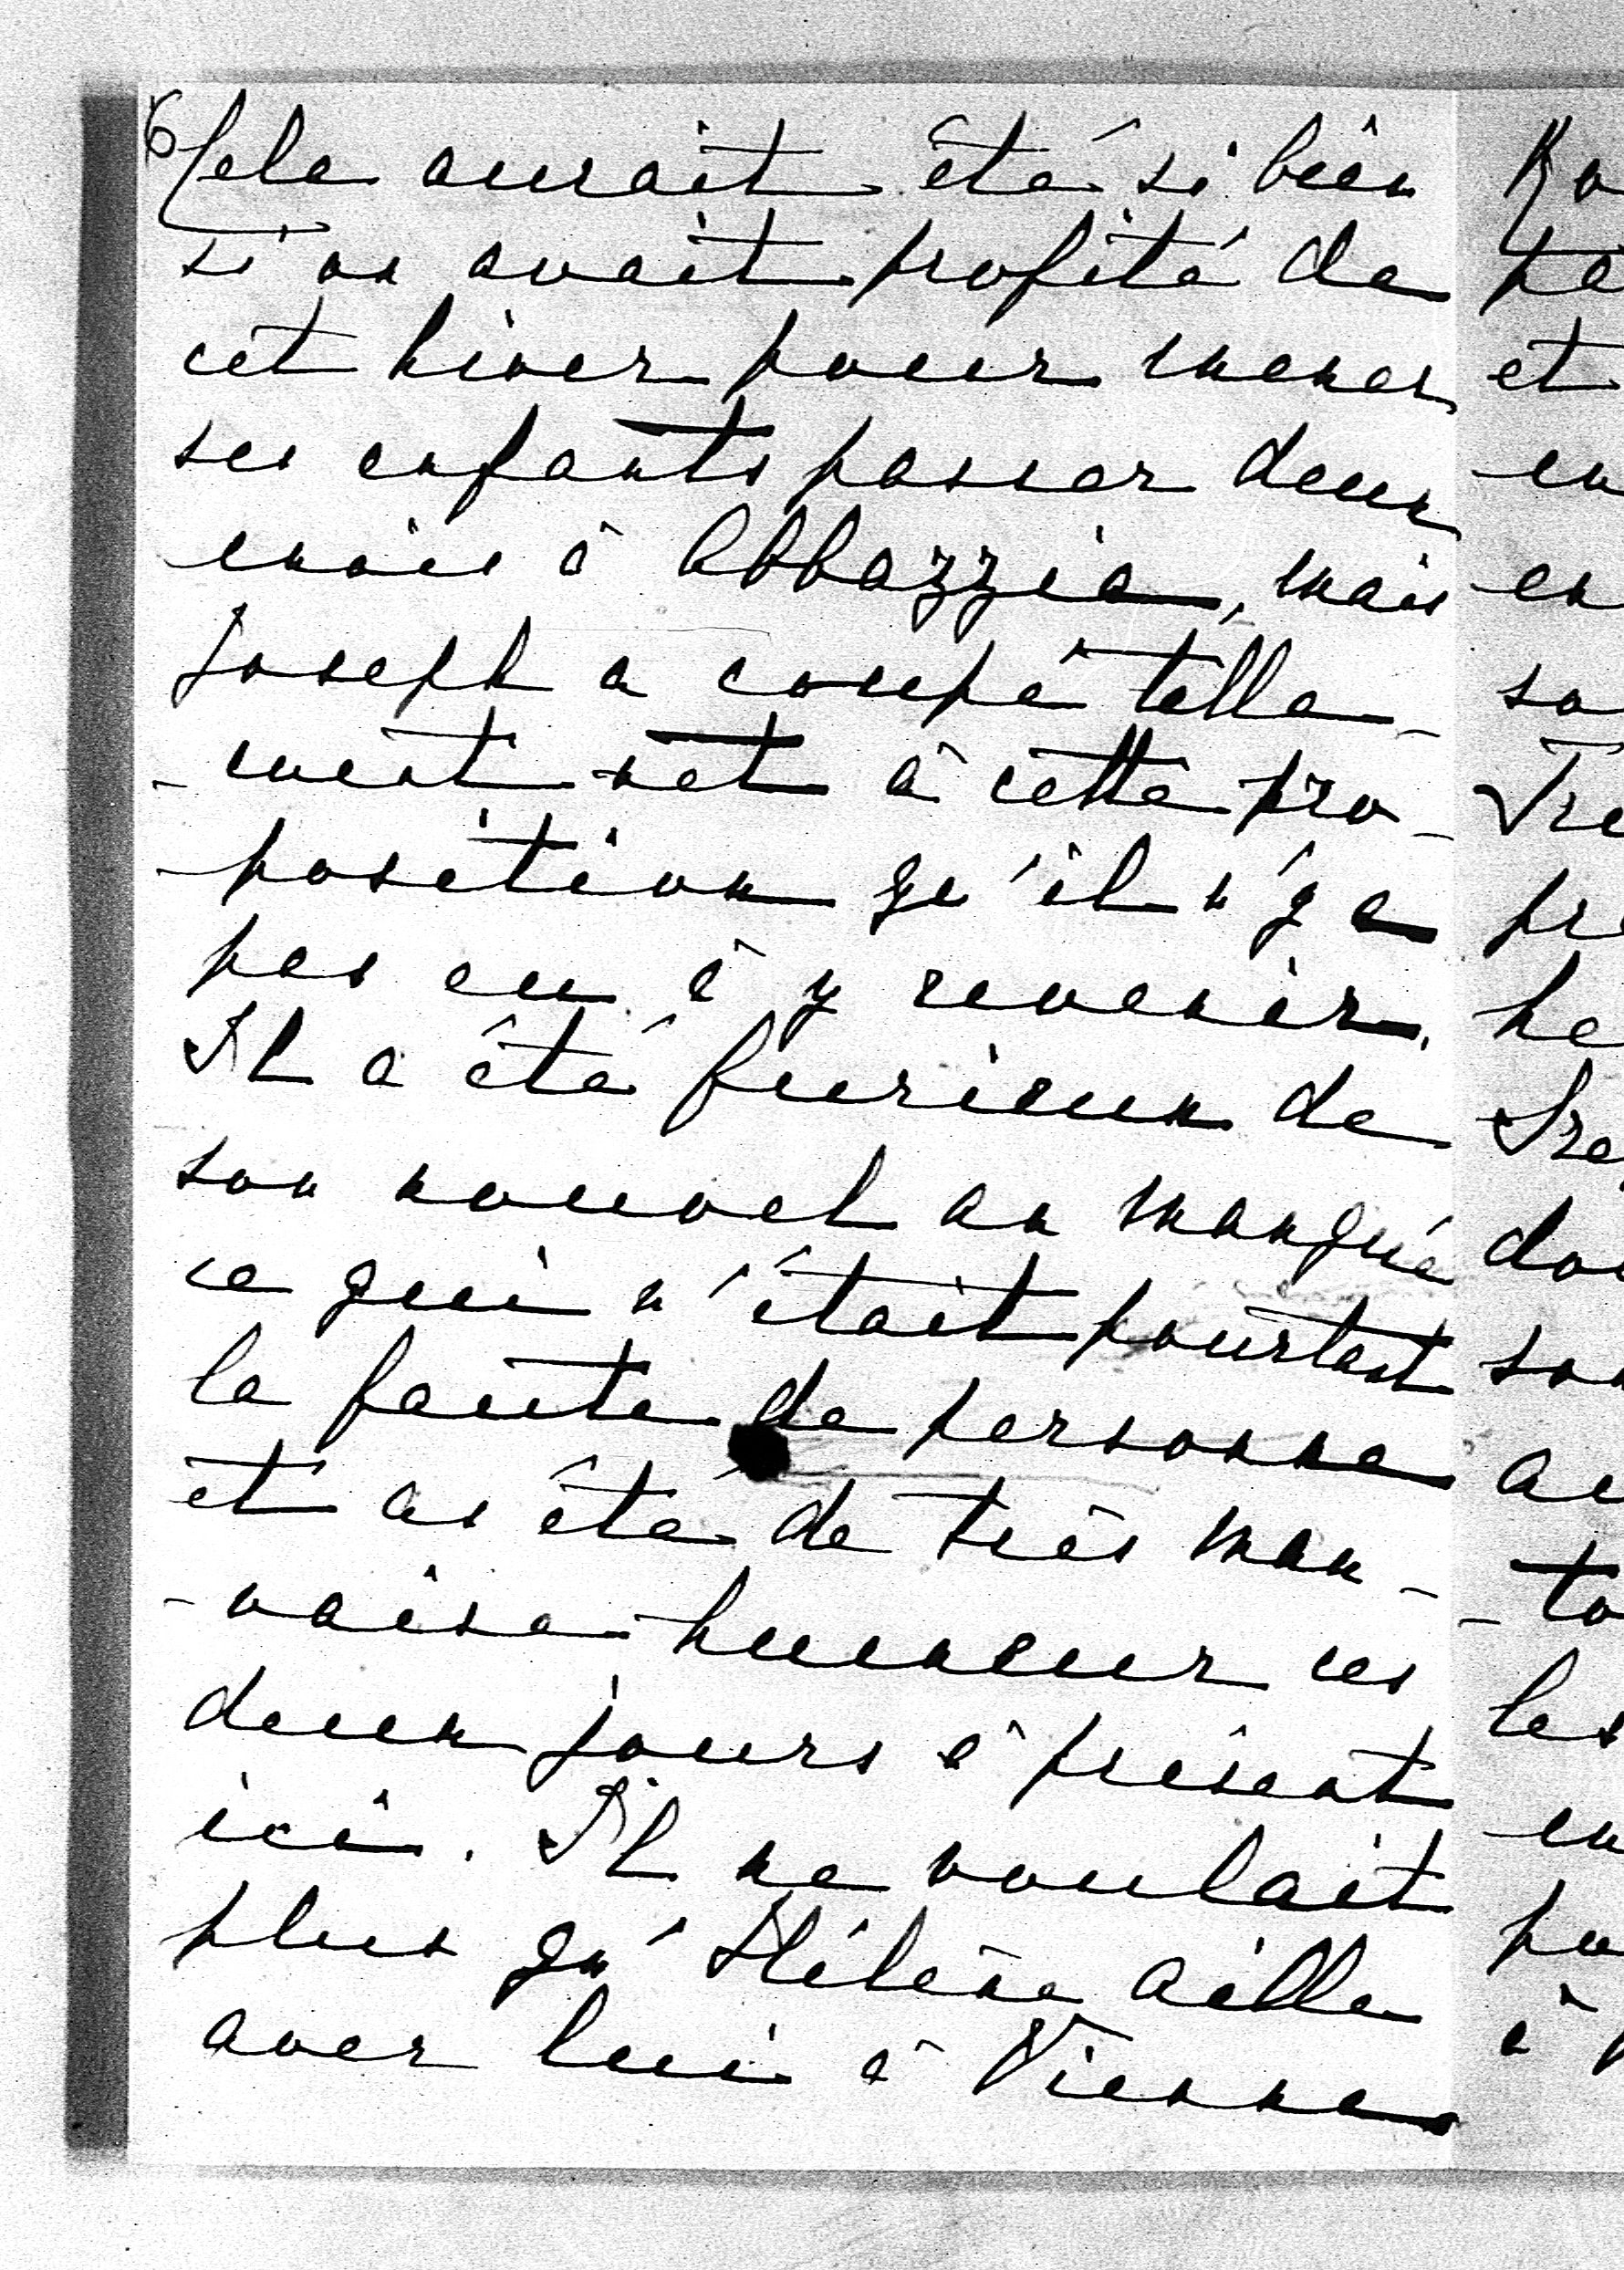 6
Cela aurait été si bien
si on avait profité de
cet hiver pour mener
ses enfants passer deux
mois à Abbazzia, mais
Joseph a coupé telle-
-ment net à cette pro-
-position qu'il n'y a
pas eu à y revenir.
Il a été furieux de
son nouvel an manqué
ce qui n'était pourtant
la faute de personne
et as été de très mau-
-vaise humeur ces
deux jours à présent
ici. Il ne voulait
plus qu'Hélène aille
avec lui à Vienne